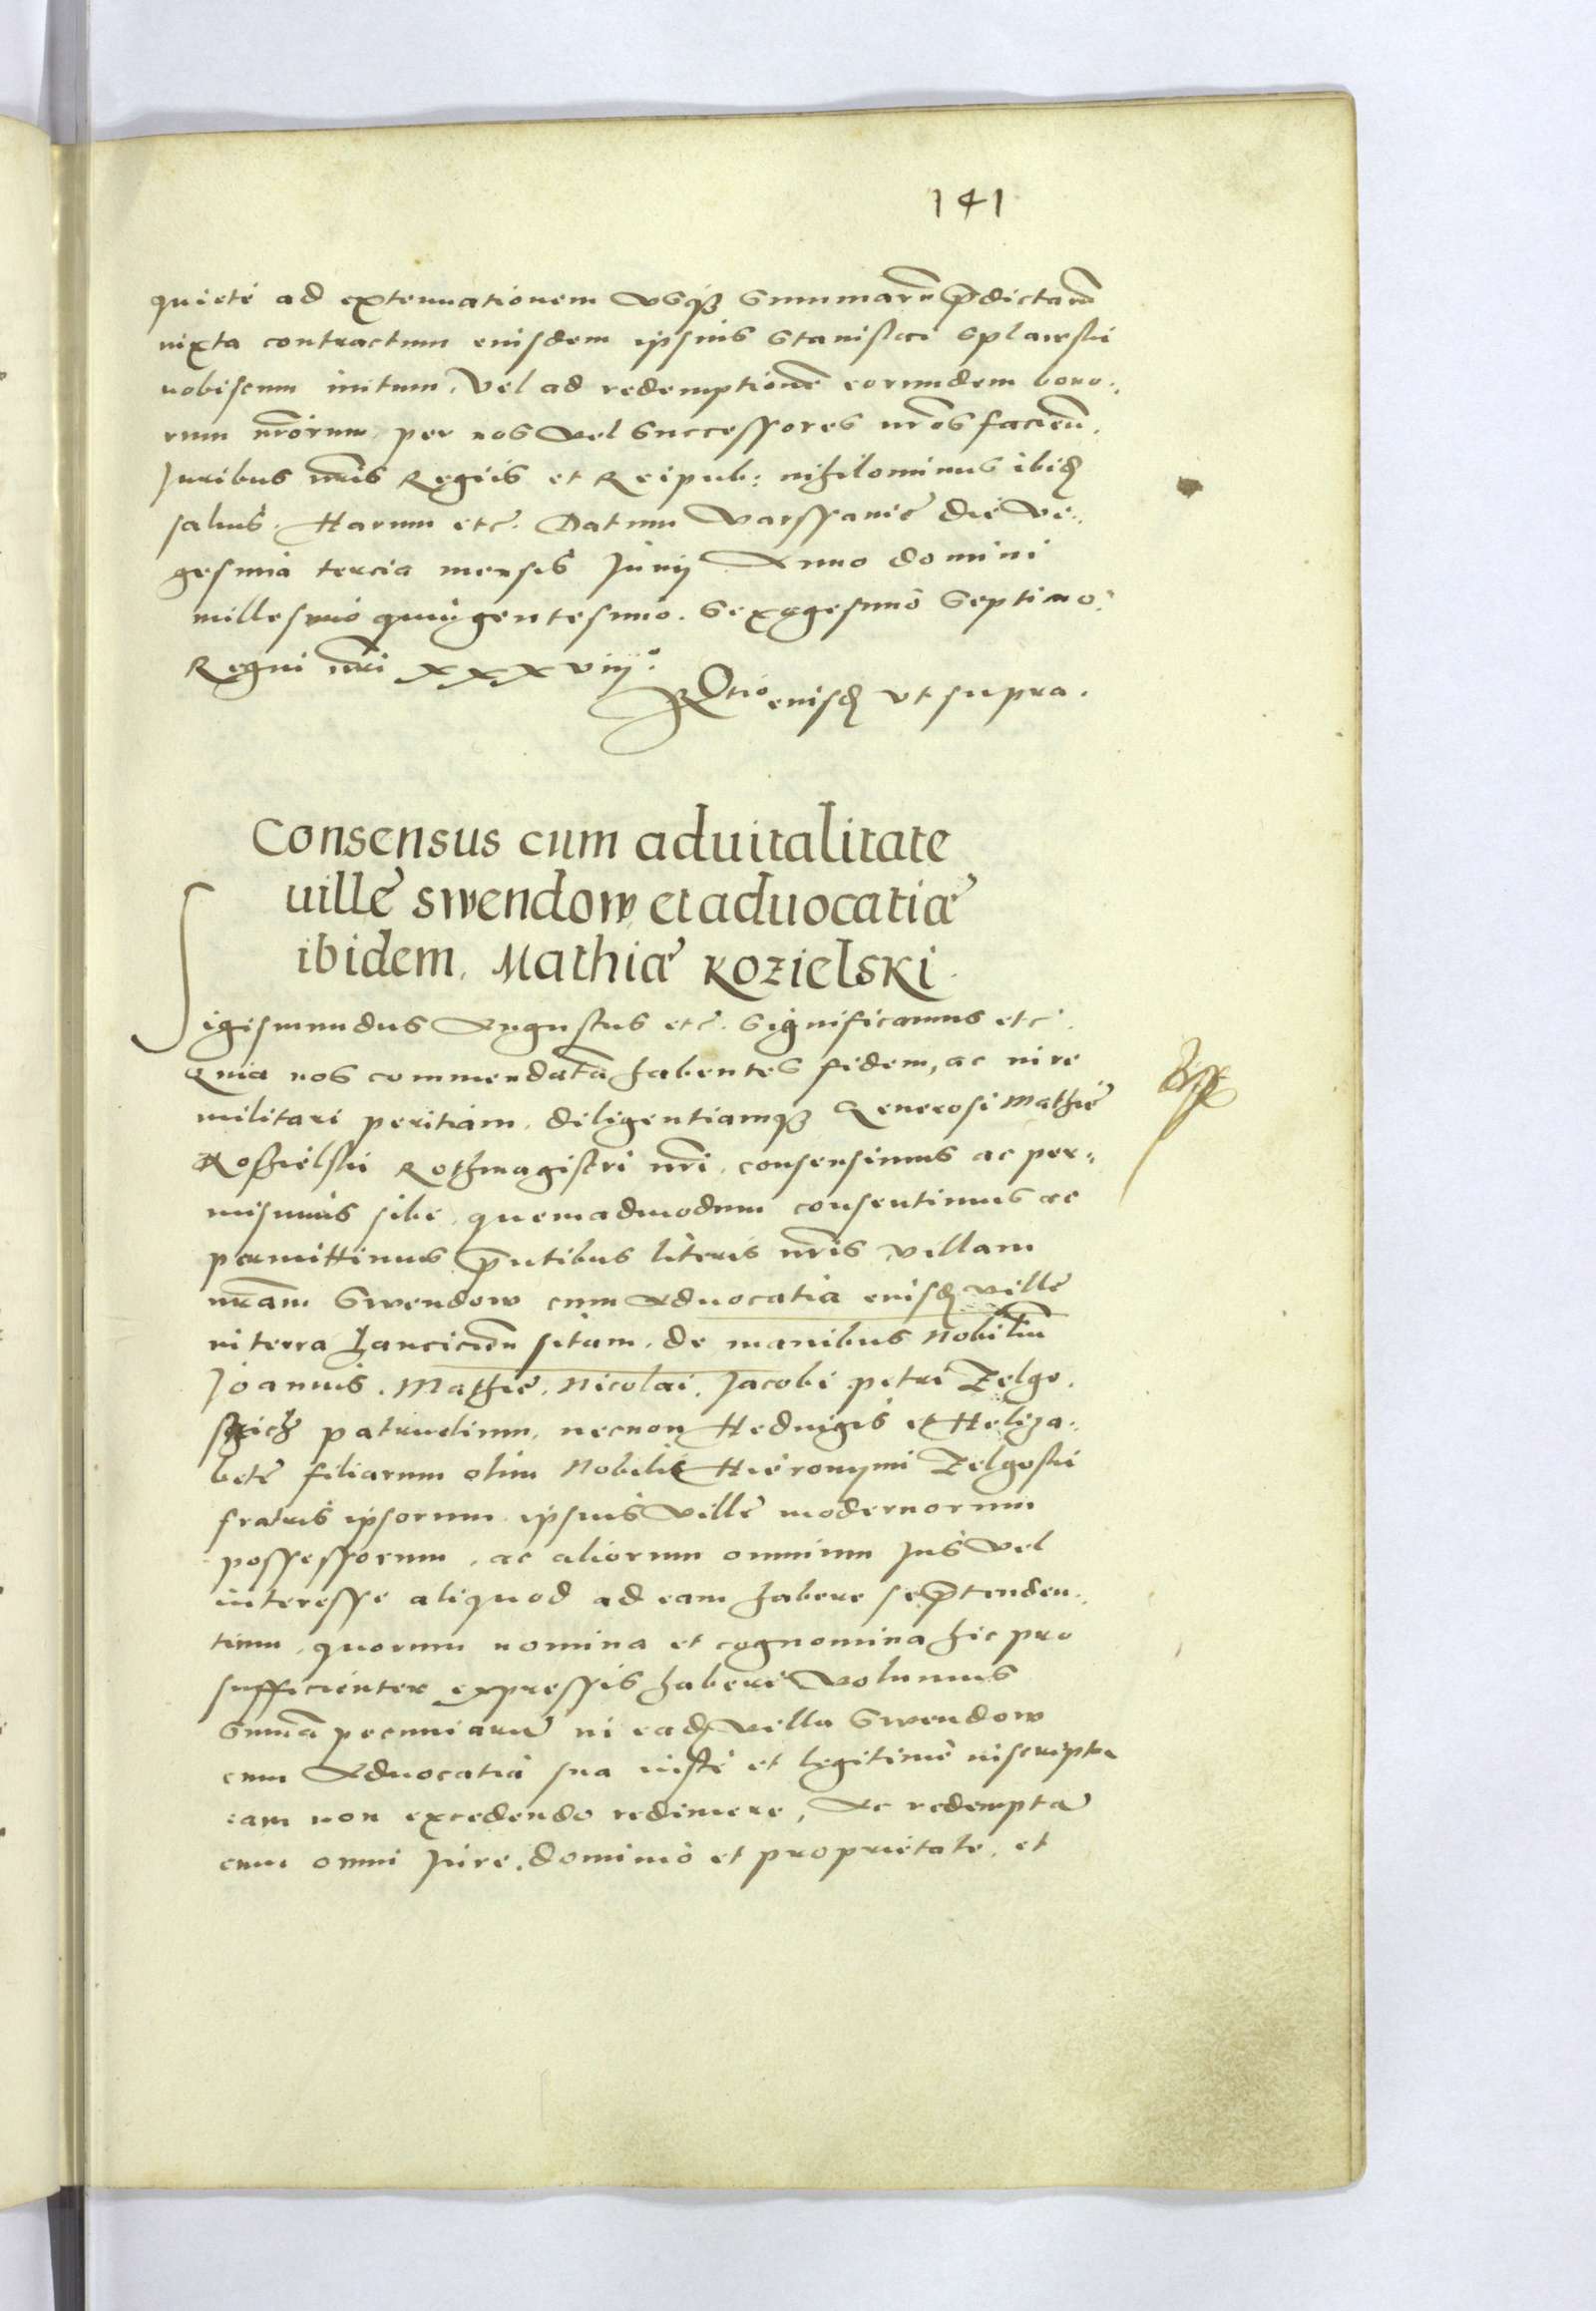 141
quiete ad extenuationem usq3 Summarũ p̃dictarũ
iuxta contractum eiusdem ipsius Stanislai Splawski
nobiscum initum, Vel ad redemptionẽ eorundem bono„
rum nr̃orum, per nos Vel Successores nr̃os faciẽn.
Juribus nr̃is Regiis et Reipub: nihilominus ibid̃
saluis. Harum etc̃. Datum Varssaniæ die Vi„
gesima tercia mensis Junij Anno domini
millesimo quingentesimo. Sexagesimo Septimo:
Regni nr̃i xxxviij°.
R͠tio eiusd̃ ut supra.
Consensus cum aduitalitate
uille Swendow et aduocatiæ
ibidem, Mathiæ Kozielski.
Sigismundus Augustus etc̃. Significamus etc̃.
Quia nos commendatã habentes fidem, ac in re
militari peritiam, diligentiamq3 Generosi Mathiæ
Koszielski Rothmagistri nr̃i, consensimus ac per„
misimus sibi, quemadmodum consentimus ac
permittimus p̃ntibus literis nr̃is Villam
nr̃am Swendow cum Aduocatia eiusd̃ Villæ
in terra Lancicien̄ sitam, de manibus Nobiliũ
Joannis, Mathiæ, Nicolai, Jacobi Petri Zelgo„
patruelium, necnon Heduigis et Heliza„
betæ filiarum olim Nobilis Hieronymi Zelgoski
fratris ipsorum, ipsius Villæ modernorum
possessorum, ac aliorum omnium Jus Vel
interesse aliquod ad eam habere se p̃tenden„
tium, quorum nomina et cognomina hic pro
sufficienter expressis haberi Volumus
Sum̃ã pecuniarũ in ead̃ Villa Swendow
cum Aduocatia sua iuste et legitime inscripta
eam non excedendo redimere, Ac redemptã
cum omni Jure, dominio et proprietate, et